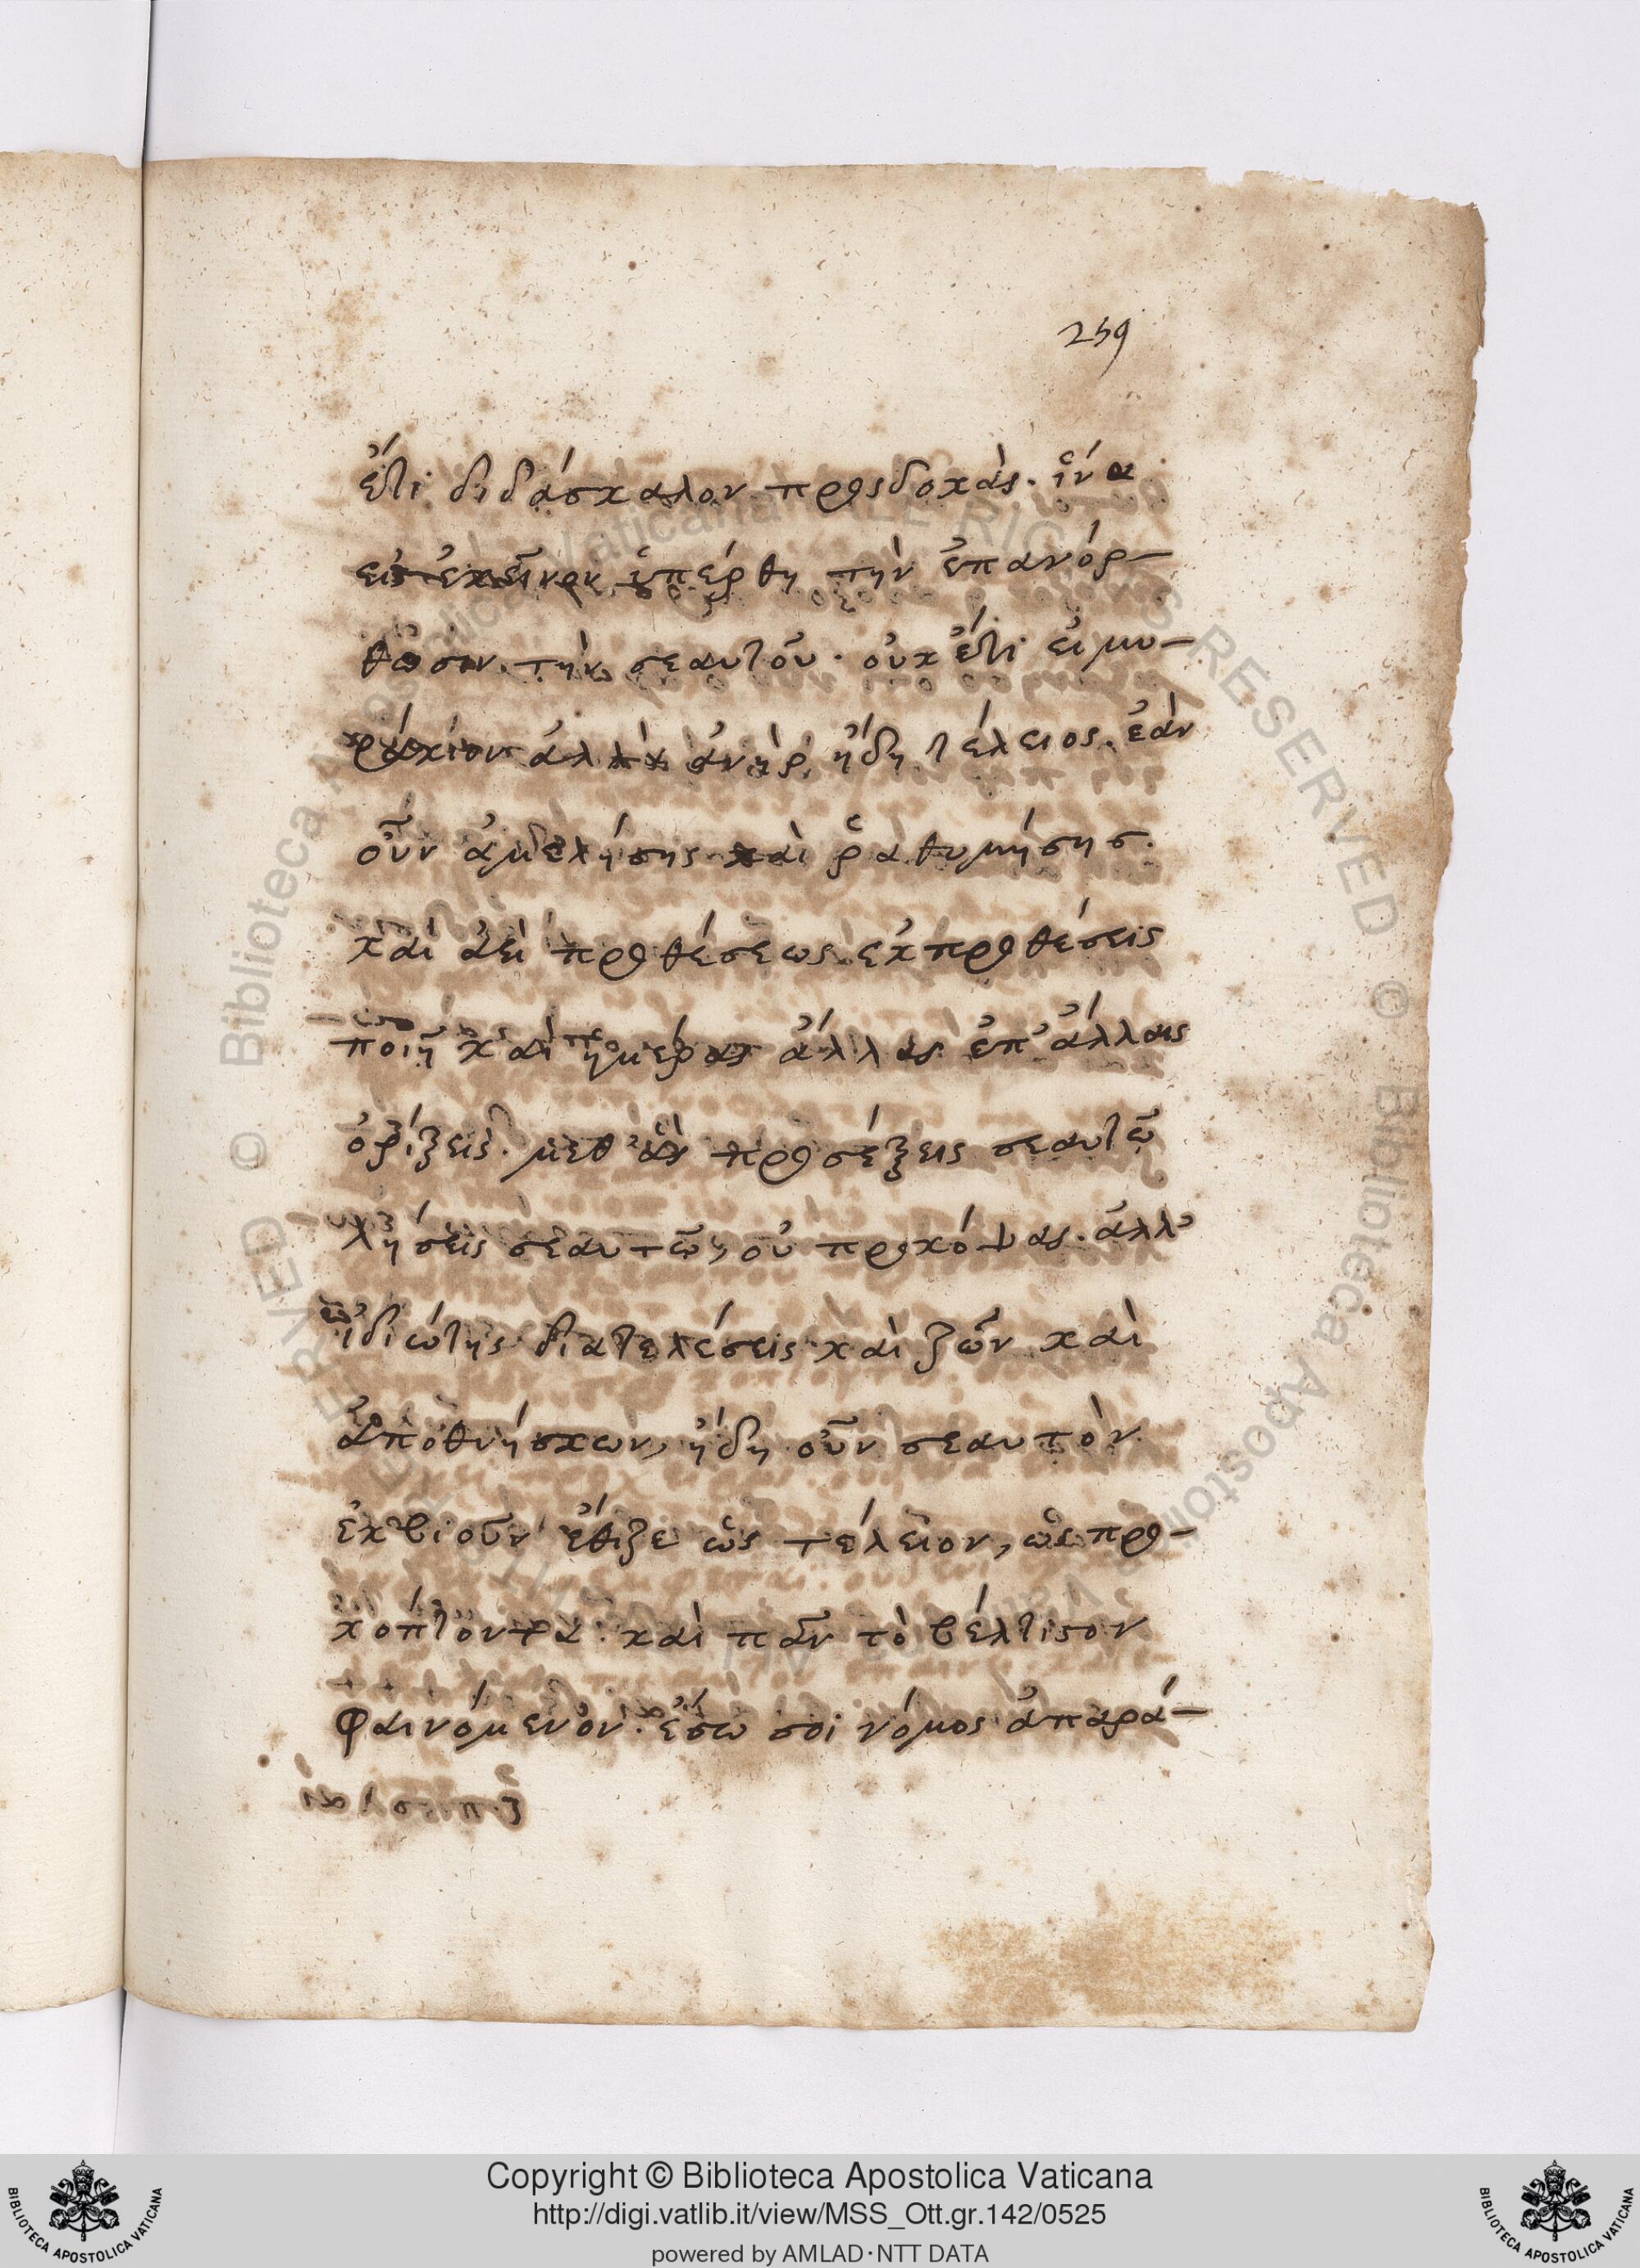 259
ἔτι διδάσκαλον προςδοκᾷς. ἵνα
εἰς ἐκεῖνον ὑπέρθῃ τὴν ἐπανόρ-
θωσιν τὴν σεαυτοῦ. οὐκ ἔτι εἶ μει-
ράκιον ἀλλὰ ἀνὴρ ἤδη τέλειος. ἐὰν
οὖν ἀμελήσῃς καὶ ῥαθυμήσῃς.
καὶ ἀεὶ προθέσεως ἐκ προθέσεις
ποιῇ καὶ ἡμέρας ἄλλας ἐπ' ἄλλαις
ὁρίζεις. μεθ' ἃς προσέξεις σεαυτῷ
λήσεις σεαυτῶ, οὐ προκόψας. ἀλλ'
ἰδιώτης διατελέσεις καὶ ζῶν καὶ
ἀποθνήσκων, ἤδη οὖν σεαυτὸν
ἐκβιοῦν ἔθιζε ὡς τέλειον, ὡς προ-
κόπτοντα. καὶ πᾶν τὸ βέλτιστον
φαινόμενον. ἔστω σοι νόμος ἀπαρά-
Copyright © Biblioteca Apostolica Vaticana
http://digi.vatlib.it/view/MSS_Ott.gr.142/0525
powered by AMLAD·NTT DATA
BIBLIOTECA APOSTOLICA VATICANA
BIBLIOTECA APOSTOLICA VATICANA